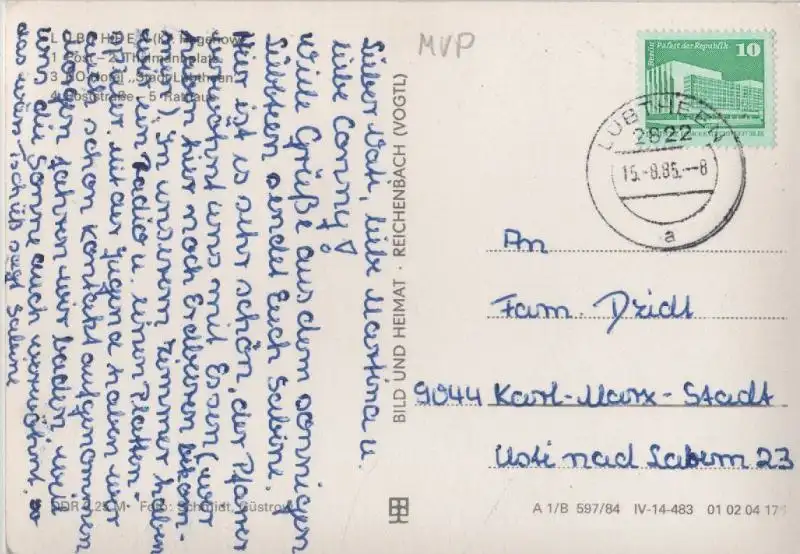 LÜBTHEEN (Kr. Hagenow)
1 Post - 2 Thälmannplatz
3 HO-Hotel "Stadt Lübtheen"
4 Poststraße - 5 Rathaus
MVP
Lieber Vati, liebe Martina u.
liebe Conny!
Viele Grüße aus dem sonnigen
Lübtheen sendet Euch Sabine.
Hier ist es sehr schön, der Pfarrer
verwöhnt uns mit Essen (wir
haben hier noch Erdbeeren bekom-
men). In unserem Zimmer haben
wir ein Radio u. einen Platten-
spieler. Mit der Jugend haben wir
auch schon Kontakt aufgenommen
Morgen fahren wir baden weil
uns die Sonne auch verwöhnt. So
das wars Tschüß sagt Sabine
DDR 0,25 M · Foto: Schmidt, Güstrow
BILD UND HEIMAT · REICHENBACH (VOGTL)
Berlin Palast der Republik 10
LÜBTHEEN
2822
15.-8.85.--8
a
An
Fam. Dzidt
9044 Karl-Marx-Stadt
Usti nad Labem 23
A 1/B 597/84 IV-14-483 01 02 04 171